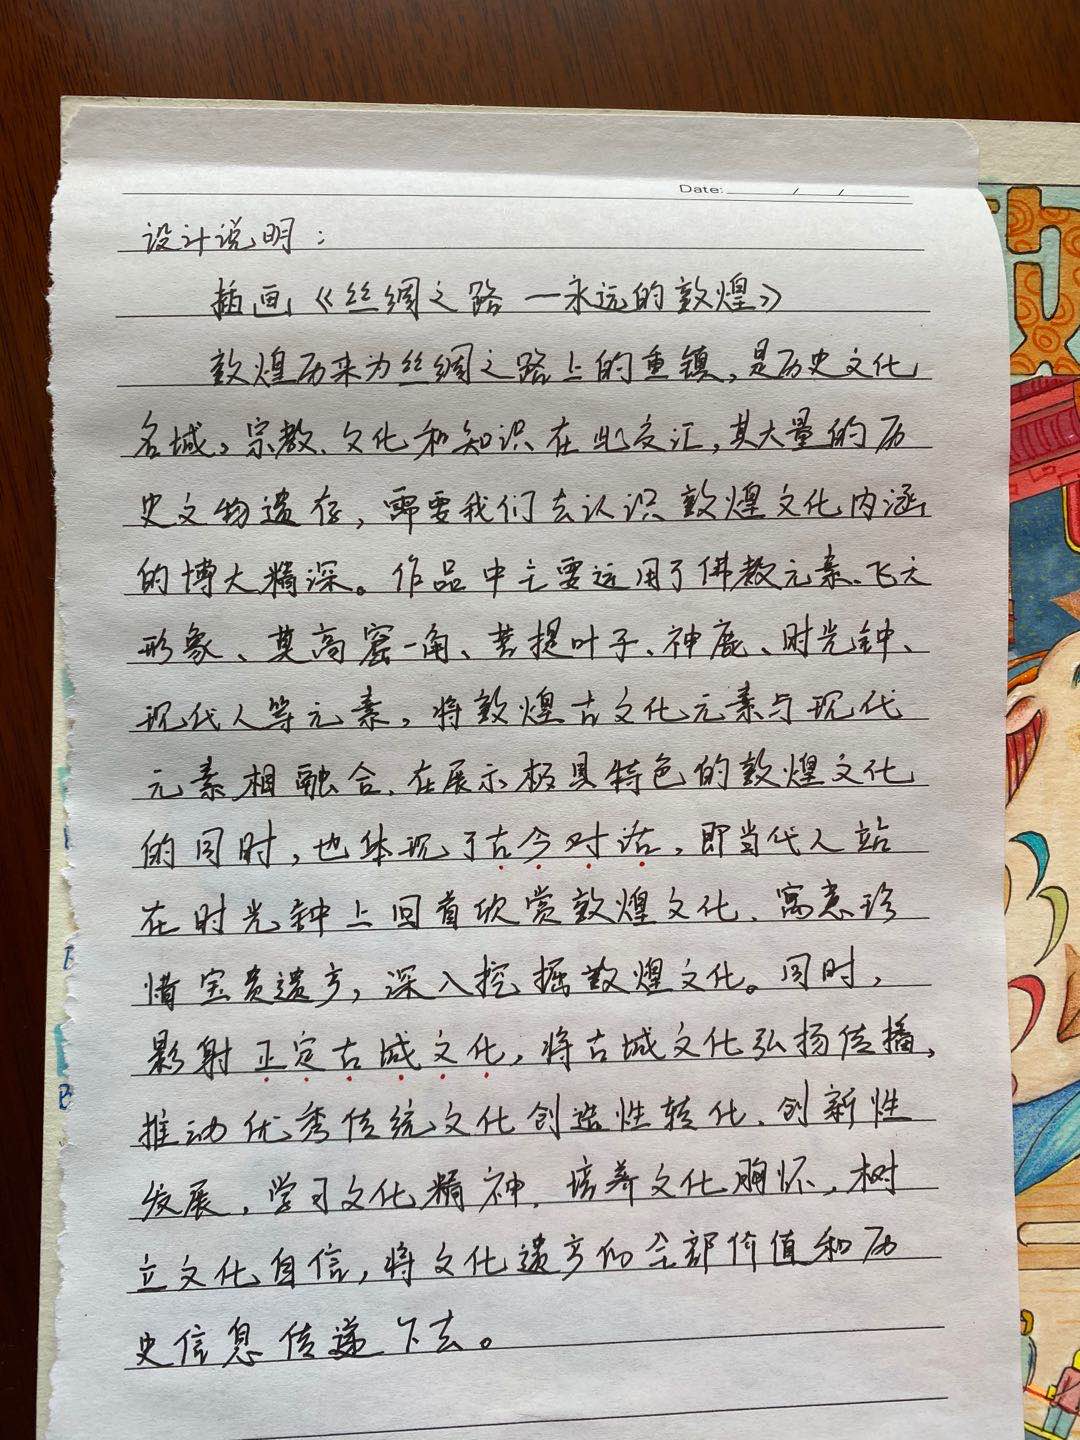 Date: / /
设计说明：
插画《丝绸之路—永远的敦煌》
敦煌历来为丝绸之路上的重镇，是历史文化
名城。宗教、文化和知识在此交汇，其大量的历
史文物遗存，需要我们去认识敦煌文化内涵
的博大精深。作品中主要运用了佛教元素、飞天
形象、莫高窟一角、菩提叶子、神鹿、时光钟、
现代人等元素，将敦煌古文化元素与现代
元素相融合、在展示极具特色的敦煌文化
的同时，也体现了古今对话，即当代人站
在时光钟上回首欣赏敦煌文化、寓意珍
惜宝贵遗产，深入挖掘敦煌文化。同时，
影射正定古城文化，将古城文化弘扬传播，
推动优秀传统文化创造性转化、创新性
发展，学习文化精神，培养文化胸怀，树
立文化自信，将文化遗产的全部价值和历
史信息传递下去。